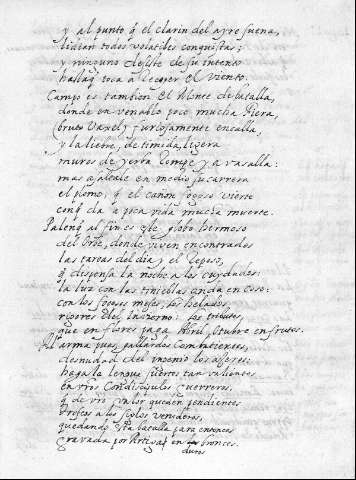 y al punto q̃ el clarin del ayre suena,
lidian todos volatiles conquistas;
y ninguno desiste de su intento
hasta q̃ toca a Recoger el viento.
Campo es tambien el Monte de batalla,
donde un venablo poco mucha fiera,
(bruto Vaxel) furiosamente encalla,
y la liebre, de timida, ligera
muros de yerba Rompe y avasalla:
mas atajale en medio su carrera
el plomo, q̃ el cañon fogoso vierte
conq̃ da a poca vida mucha muerte.
Palenq̃ al fin es este globo hermoso
del Orbe, donde viven encontrados
las tareas del dia, y el Reposo,
q̃ dispensa la noche a los cuydados:
la luz con las tinieblas anda en coso:
con los fogosos meses, los helados
rigores del invierno: los tributos,
que en flores paga Abril, Otubre en frutos.
Al arma pues, gallardos Combatientes,
desnudad del ingenio los aceros:
haga la lengua suertes tan valientes
en vros Condiscipulos guerreros,
q̃ de vro valor queden pendientes
trofeos a los siglos venideros,
quedando esta batalla para entonces
gravada por Artigas en los bronces.
duros